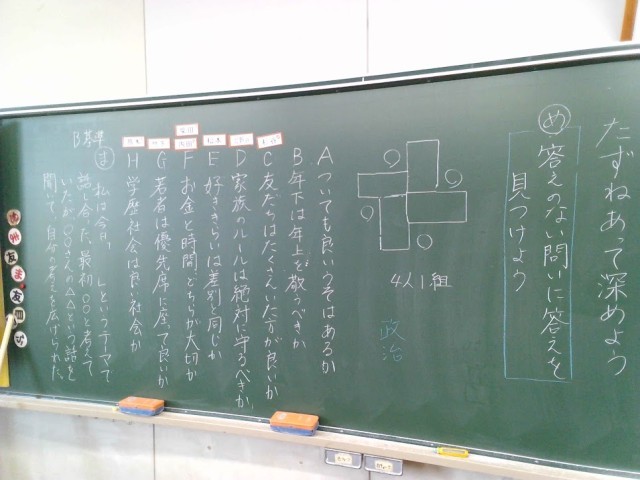 たずねあって深めよう
め 答えのない問いに答えを
見つけよう
4人1組
政治
A ついても良いうそはあるか
B 年下は年上を敬うべきか
C 友だちはたくさんいた方が良いか
D 家族のルールは絶対に守るべきか
E 好ききらいは差別と同じか
F お金と時間、どちらが大切か
G 若者は優先席に座って良いか
H 学歴社会は良い社会か
B基準
ま 私は今日、「 」というテーマで
話し合った。最初、〇〇と考えて
いたが〇〇さんの△△という話を
聞いて、自分の考えを広げられた。